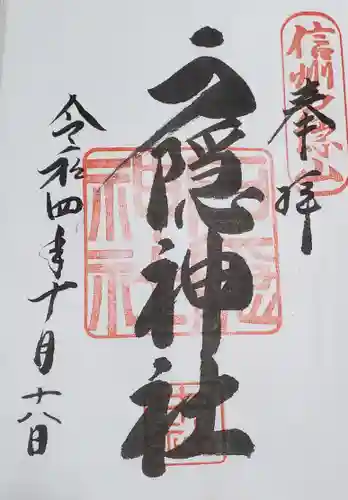 奉拝
信州戸隠山
戸隠神社
令和四年十月十八日